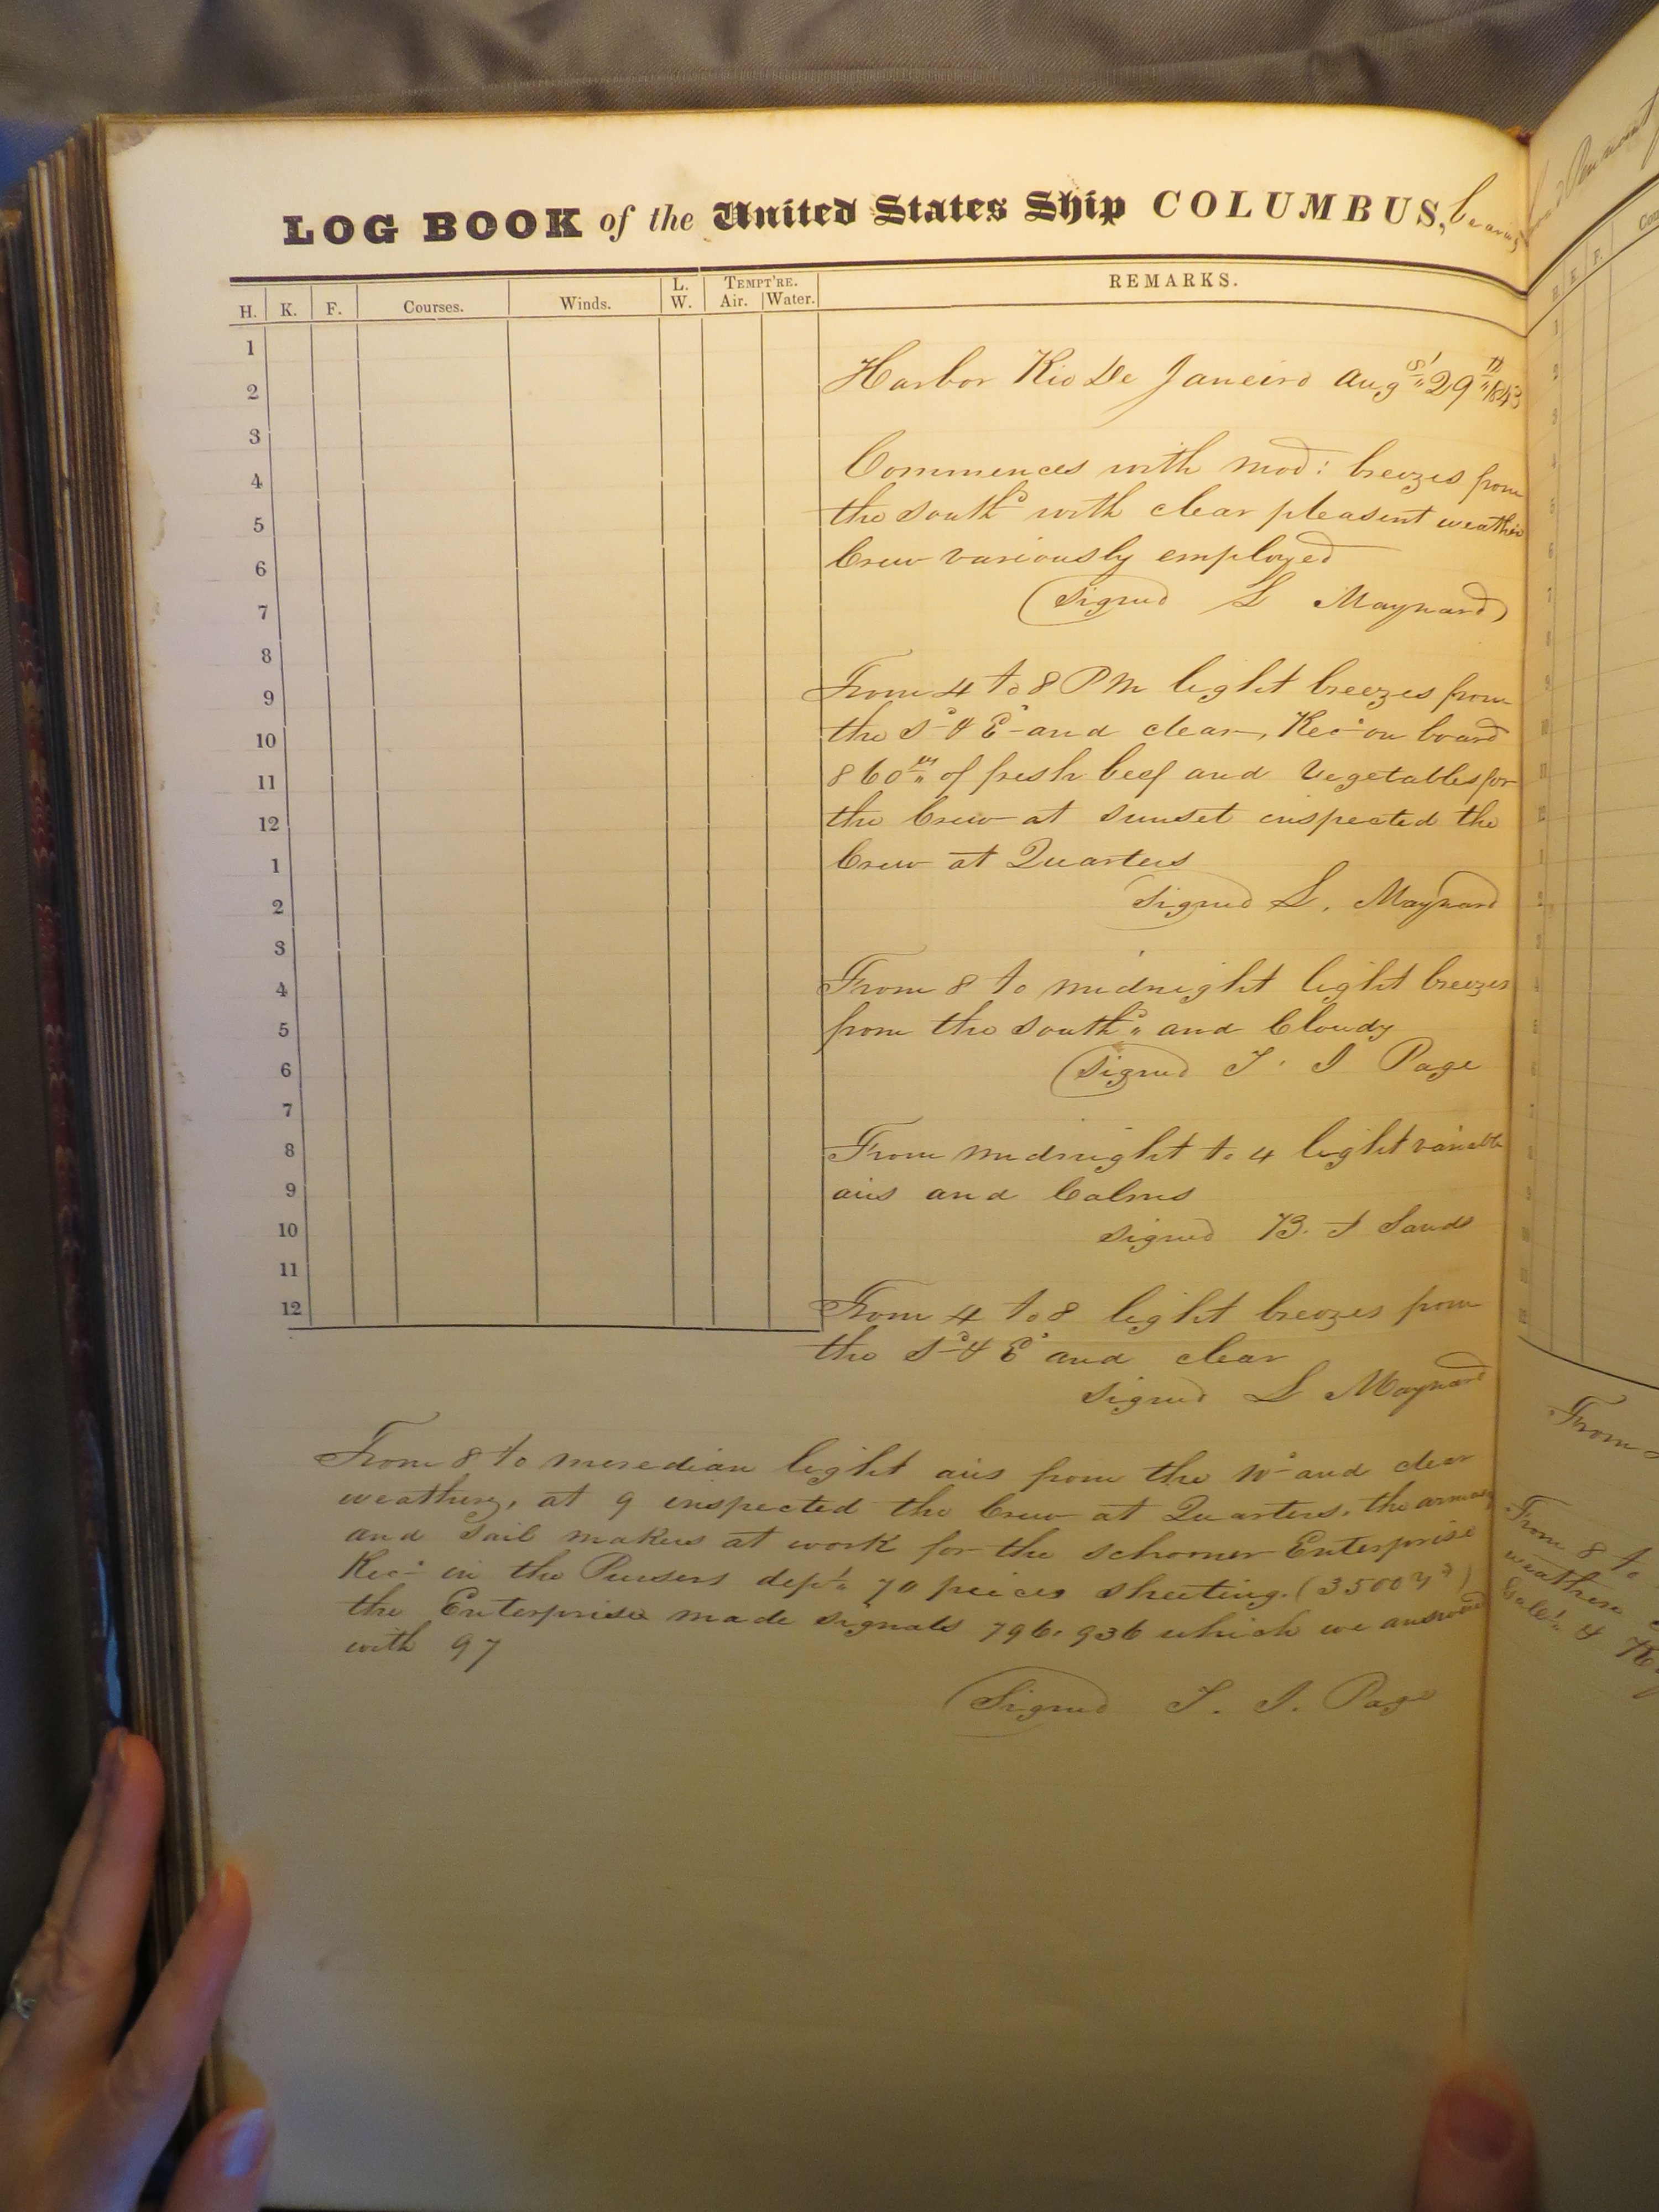 LOG BOOK of the United States Ship COLUMBUS, bearing
H. K. F. Courses. Winds. L. W. TEMPT'RE. Air. Water. REMARKS.
1
2
3
4
5
6
7
8
9
10
11
12
1
2
3
4
5
6
7
8
9
10
11
12
Harbor Rio De Janeiro Augst 29th 1843
Commences with mod: breezes from
the Southd with clear pleasent weather
Crew variously employed
(Signed L Maynard)
From 4 to 8 PM light breezes from
the Sd & Ed and clear, Recd on board
860 lbs of fresh beef and Vegetables for
the Crew at sunset inspected the
Crew at Quarters
Signed L. Maynard
From 8 to midnight light breezes
from the Southd and Cloudy
(Signed T. J Page
From midnight to 4 light variable
airs and Calms
Signed B. F Sands
From 4 to 8 light breezes from
the Sd & Ed and clear
Signed L Maynard
From 8 to meredian light airs from the Nd and clear
weather, at 9 inspected the Crew at Quarters, the
and Sail makers at work for the Schooner Enterprise
Recd in the Pursers dept 70 peices sheeting. (3500 yds)
the Enterprise made signals 796. 936 which we answered
with 97
(Signed T. J. Page
From
From 8 to
weather